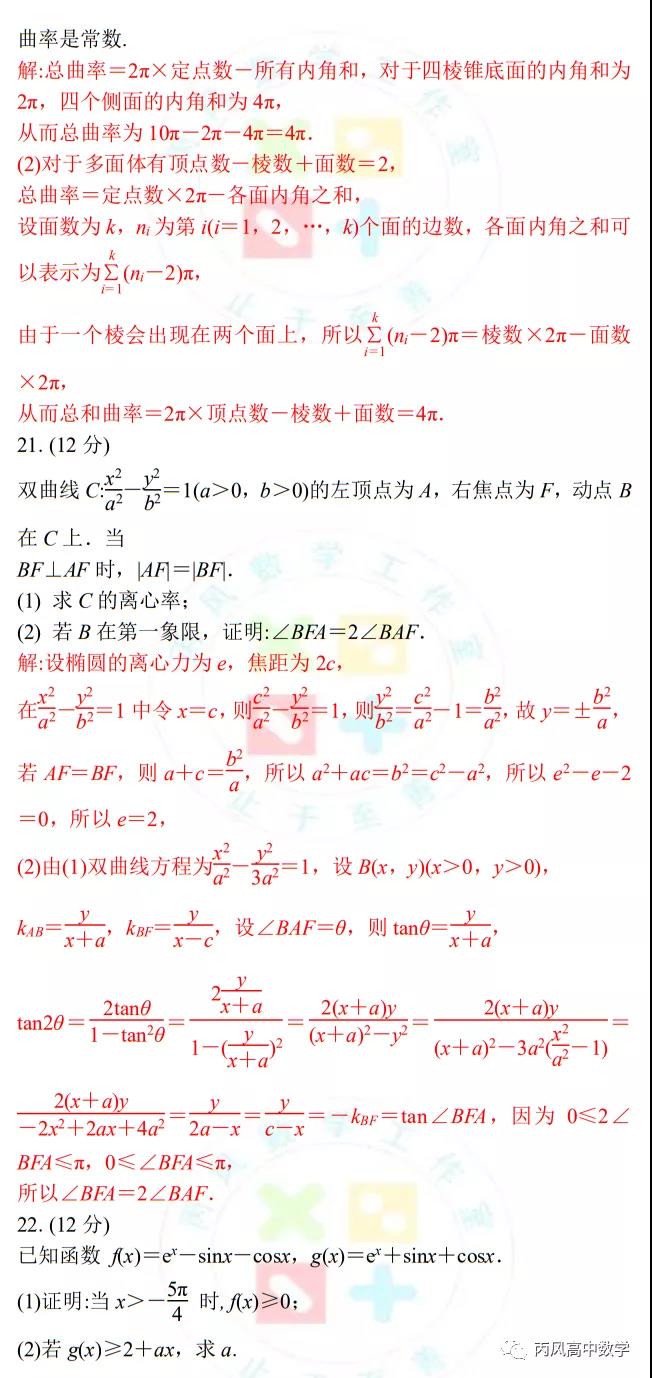 曲率是常数.
解:总曲率＝2π×定点数－所有内角和，对于四棱锥底面的内角和为
2π，四个侧面的内角和为 4π，
从而总曲率为 10π－2π－4π＝4π．
(2)对于多面体有顶点数－棱数＋面数＝2，
总曲率＝定点数×2π－各面内角之和，
设面数为 k，nᵢ为第 i(i＝1，2，⋯，k)个面的边数，各面内角之和可
以表示为∑_{i=1}^{k}(nᵢ－2)π，
由于一个棱会出现在两个面上，所以∑_{i=1}^{k}(nᵢ－2)π＝棱数×2π－面数
×2π，
从而总和曲率＝2π×顶点数－棱数＋面数＝4π．
21. (12 分)
双曲线 C:x²/a²－y²/b²＝1(a＞0，b＞0)的左顶点为 A，右焦点为 F，动点 B
在 C 上．当
BF⊥AF 时，|AF|＝|BF|．
(1) 求 C 的离心率；
(2) 若 B 在第一象限，证明:∠BFA＝2∠BAF．
解:设椭圆的离心力为 e，焦距为 2c，
在x²/a²－y²/b²＝1 中令 x＝c，则c²/a²－y²/b²＝1，则y²/b²＝c²/a²－1＝b²/a²，故 y＝±b²/a，
若 AF＝BF，则 a＋c＝b²/a，所以 a²＋ac＝b²＝c²－a²，所以 e²－e－2
＝0，所以 e＝2，
(2)由(1)双曲线方程为x²/a²－y²/3a²＝1，设 B(x，y)(x＞0，y＞0)，
k_AB＝y/(x＋a)，k_BF＝y/(x－c)，设∠BAF＝θ，则 tanθ＝y/(x＋a)，
tan2θ＝2tanθ/(1－tan²θ)＝(2 y/(x＋a))/(1－(y/(x＋a))²)＝2(x＋a)y/((x＋a)²－y²)＝2(x＋a)y/((x＋a)²－3a²(x²/a²－1))＝
2(x＋a)y/(－2x²＋2ax＋4a²)＝y/(2a－x)＝y/(c－x)＝－k_BF＝tan∠BFA，因为 0≤2∠
BFA≤π，0≤∠BFA≤π，
所以∠BFA＝2∠BAF．
22. (12 分)
已知函数 f(x)＝eˣ－sinx－cosx，g(x)＝eˣ＋sinx＋cosx．
(1)证明:当 x＞－5π/4 时,f(x)≥0；
(2)若 g(x)≥2＋ax，求 a.
丙风高中数学